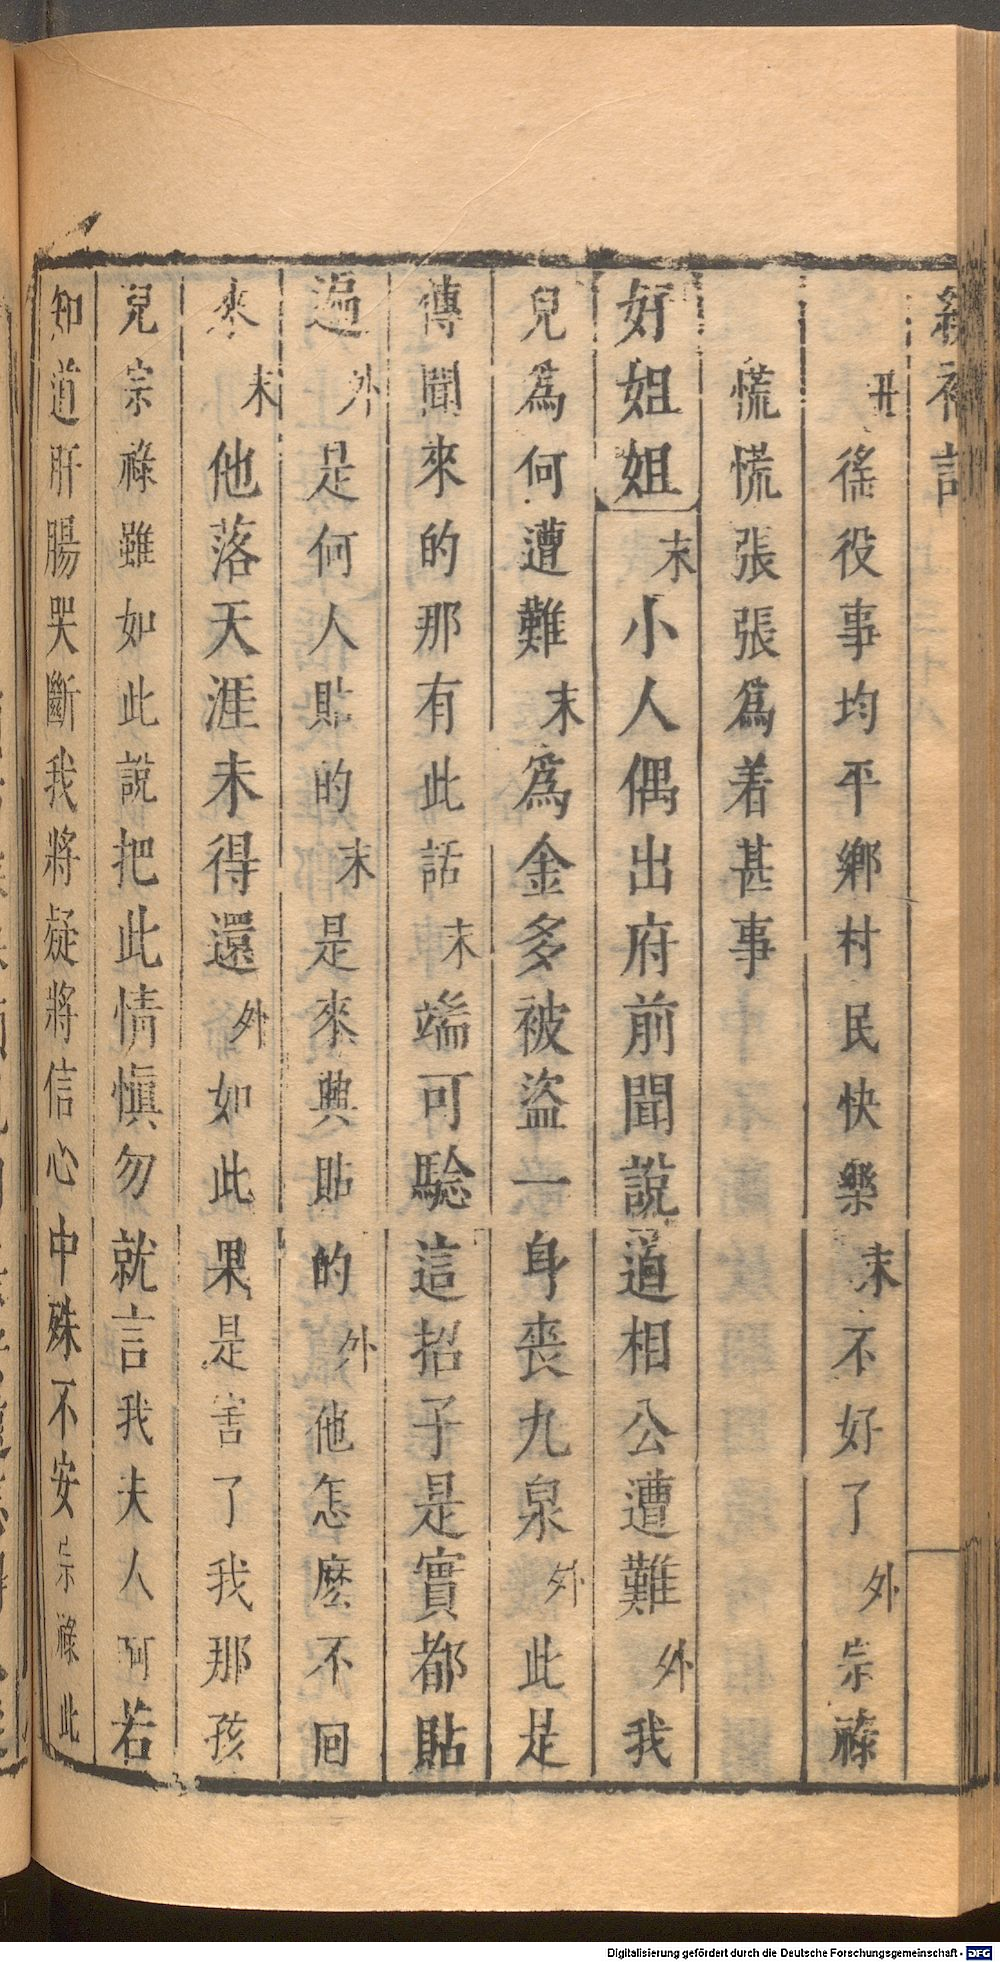 丑徭役事均平鄉村民快樂末不好了外宗祿
慌慌張張爲着甚事
好姐姐末小人偶出府前聞說道相公遭難外我
兒爲何遭難末爲金多被盜一身喪九泉外此是
傳聞來的那有此話末端可驗這招子是實都貼
遍外是何人貼的末是來興貼的外他怎麽不回
來末他落天涯未得還外如此果是害了我那孩
兒宗祿雖如此說把此情愼勿就言我夫人阿若
知道肝腸哭斷我將疑將信心中殊不安宗祿此
Digitalisierung gefördert durch die Deutsche Forschungsgemeinschaft - DFG